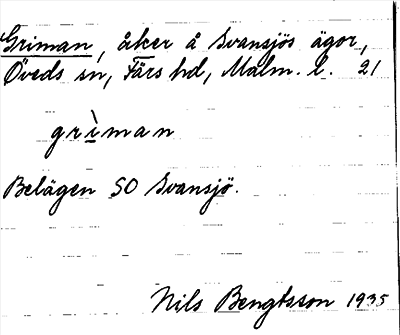 Griman, åker å Svansjös ägor,
Öveds sn, Färs hd, Malm. l. 21
grı̀man
Belägen SO Svansjö.
Nils Bengtsson 1935